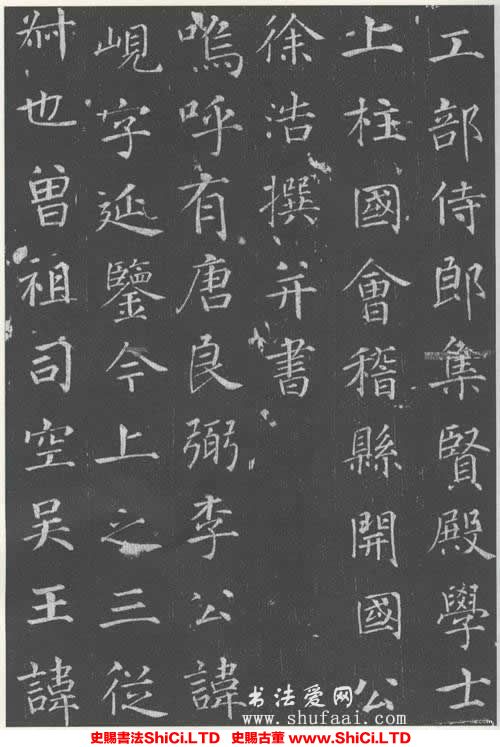 工部侍郎集賢殿學士
上柱國會稽縣開國公
徐浩撰并書
嗚呼有唐良弼李公諱
峴字延鑒今上之三從
叔也曾祖司空吴王諱
书法爱网
www.shufaai.com
史賜書法ShiCi.LTD 史賜古董 www.ShiCi.LTD